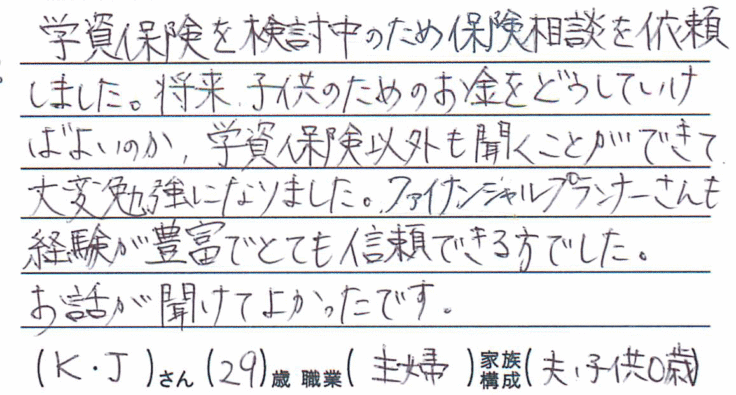 学資保険を検討中のため保険相談を依頼
しました。将来、子供のためのお金をどうしていけ
ばよいのか、学資保険以外も聞くことができて
大変勉強になりました。ファイナンシャルプランナーさんも
経験が豊富でとても信頼できる方でした。
お話が聞けてよかったです。
(K・J)さん (29)歳 職業(主婦)家族構成(夫、子供0歳)